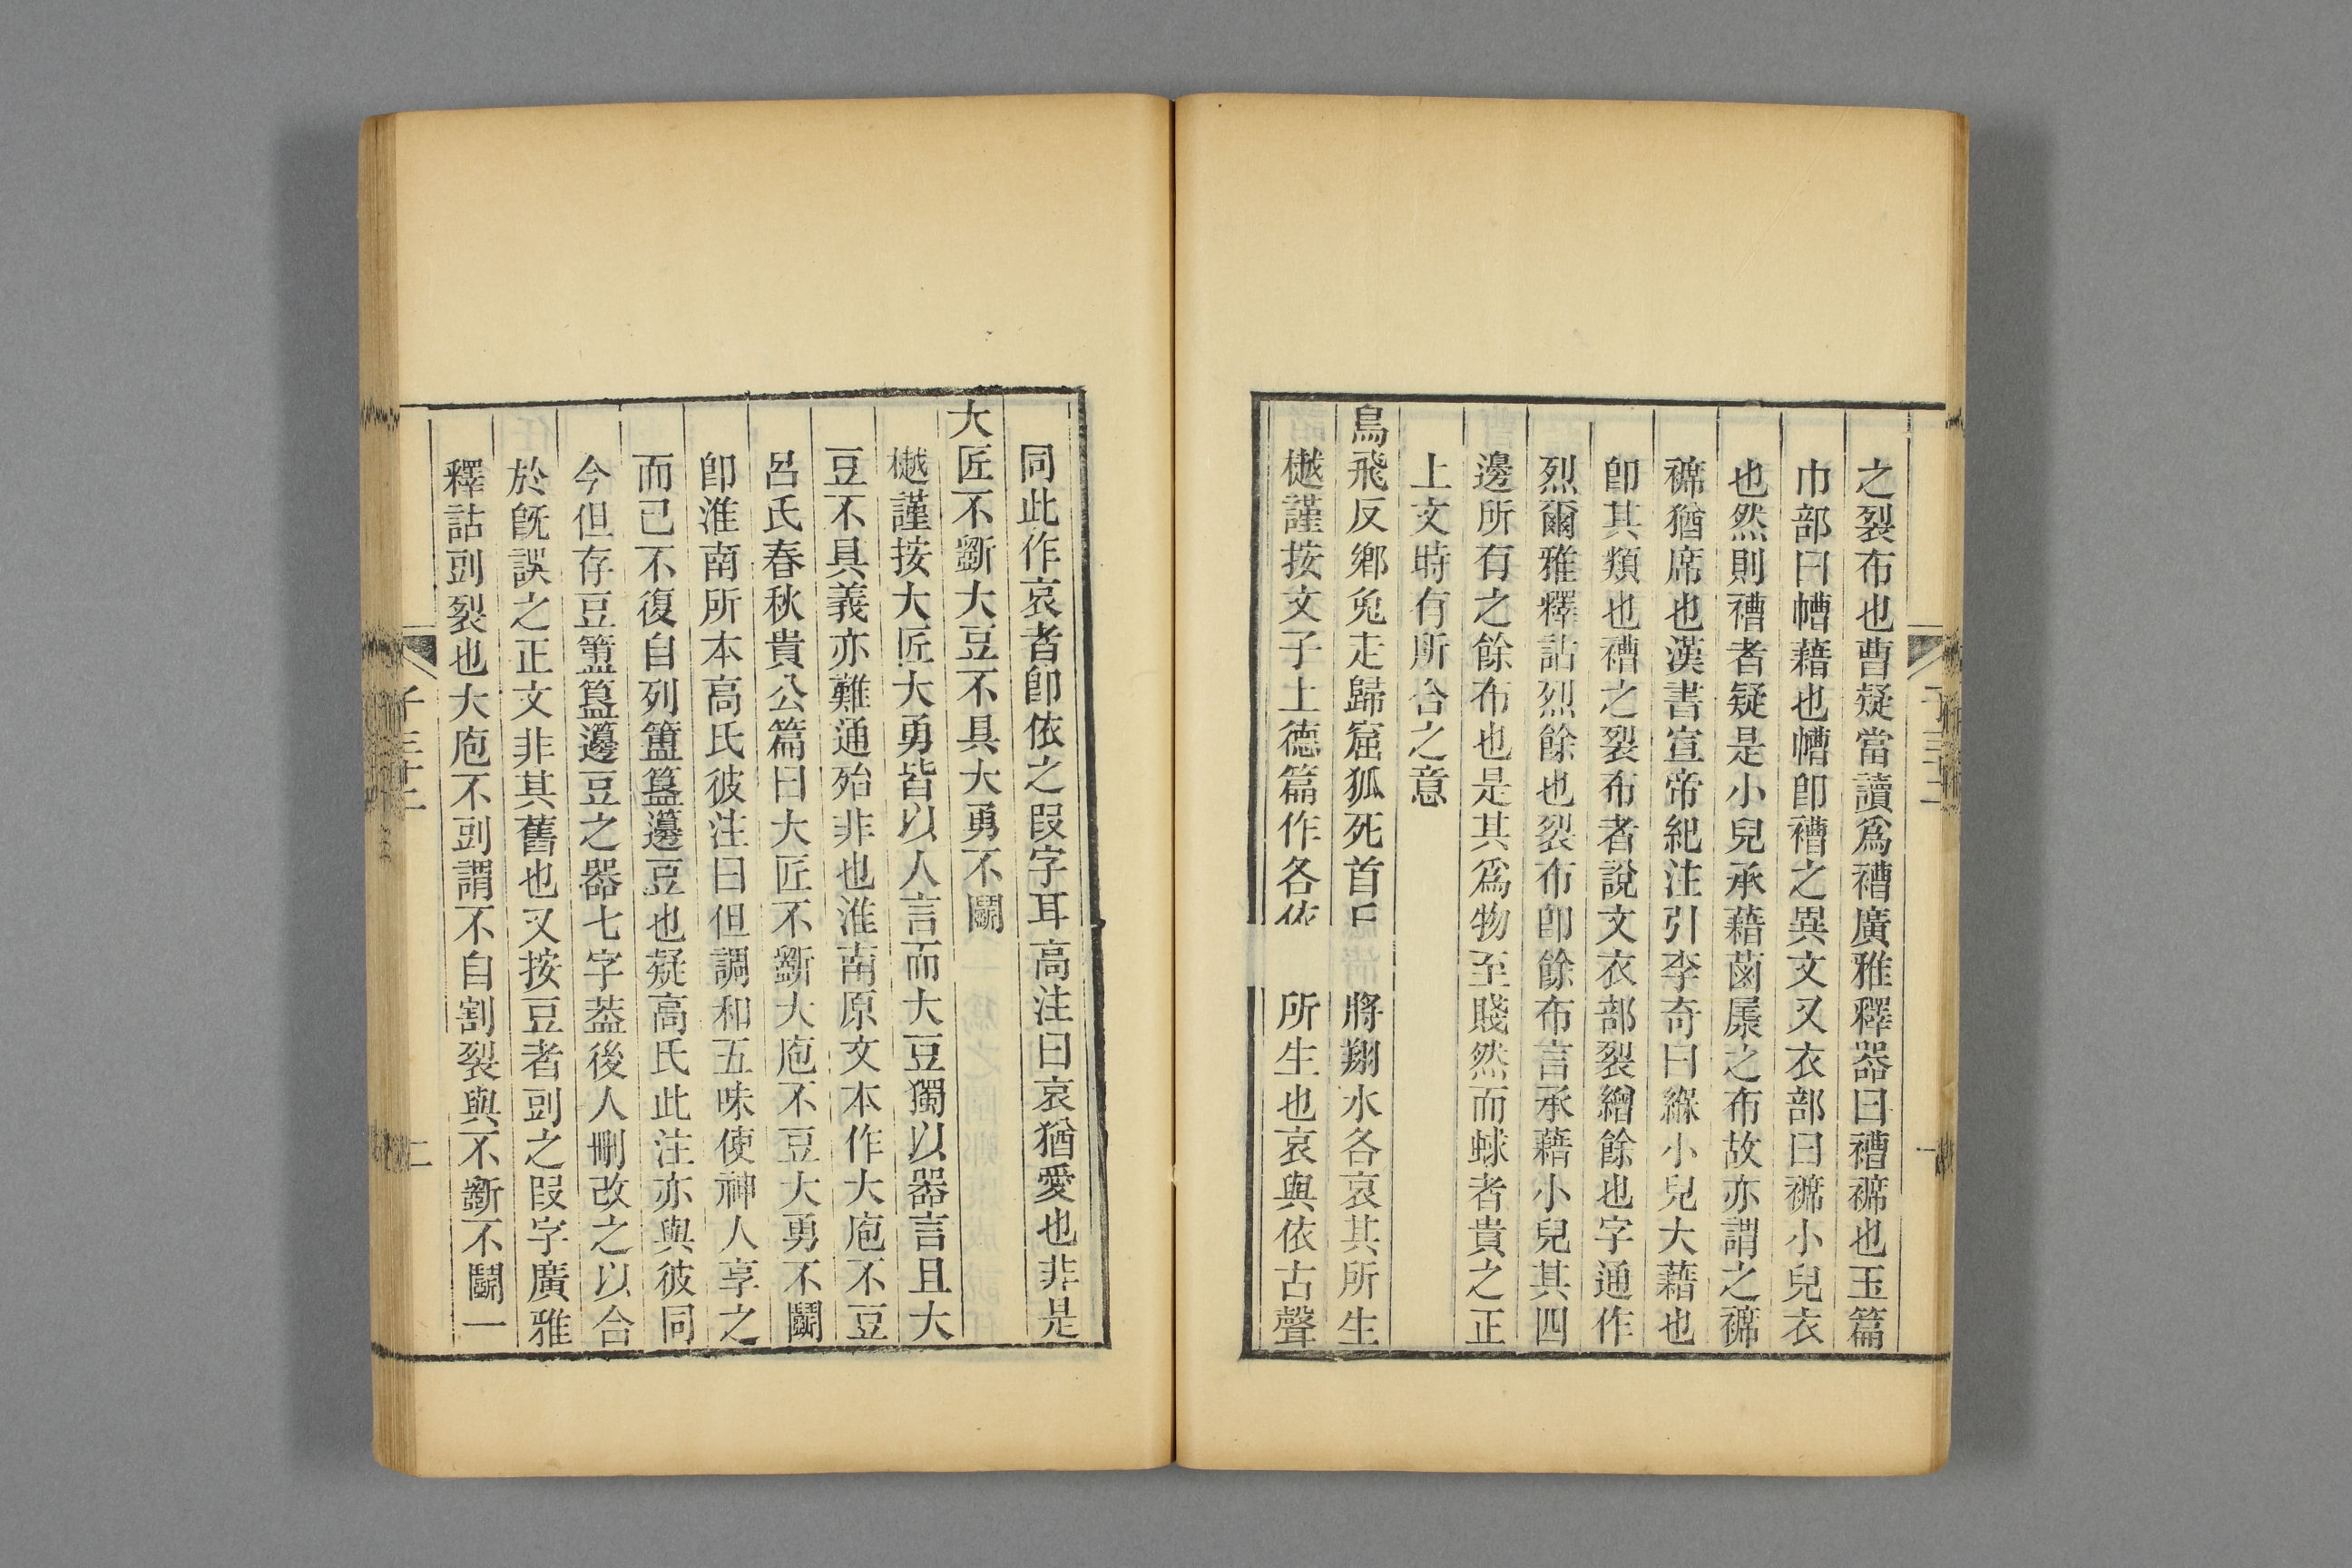 之裂布也曹疑當讀爲褿廣雅釋器曰褿𧝐也玉篇
巾部曰㡟藉也㡟卽褿之異文又衣部曰𧝐小兒衣
也然則褿者疑是小兒承藉菌㞙之布故亦謂之𧝐
𧝐猶席也漢書宣帝紀注引李奇曰緥小兒大藉也
卽其類也褿之裂布者說文衣部裂繒餘也字通作
烈爾雅釋詁烈餘也裂布卽餘布言承藉小兒其四
邊所有之餘布也是其爲物至賤然而蛷者貴之正
上文時有所合之意
鳥飛反鄉兔走歸窟狐死首 將翔水各哀其所生
樾謹按文子上德篇作各依 所生也哀與依古聲
同此作哀者卽依之叚字耳高注曰哀猶愛也非是
大匠不斵大豆不具大勇不鬭
樾謹按大匠大勇皆以人言而大豆獨以器言且大
豆不具義亦難通殆非也淮南原文本作大庖不豆
呂氏春秋貴公篇曰大匠不斵大庖不豆大勇不鬭
卽淮南所本高氏彼注曰但調和五味使神人享之
而已不復自列簠簋籩豆也疑高氏此注亦與彼同
今但存豆簠簋籩豆之器七字葢後人刪改之以合
於旣誤之正文非其舊也又按豆者剅之叚字廣雅
釋詁剅裂也大庖不剅謂不自割裂與不斵不鬭一
子三十二
二